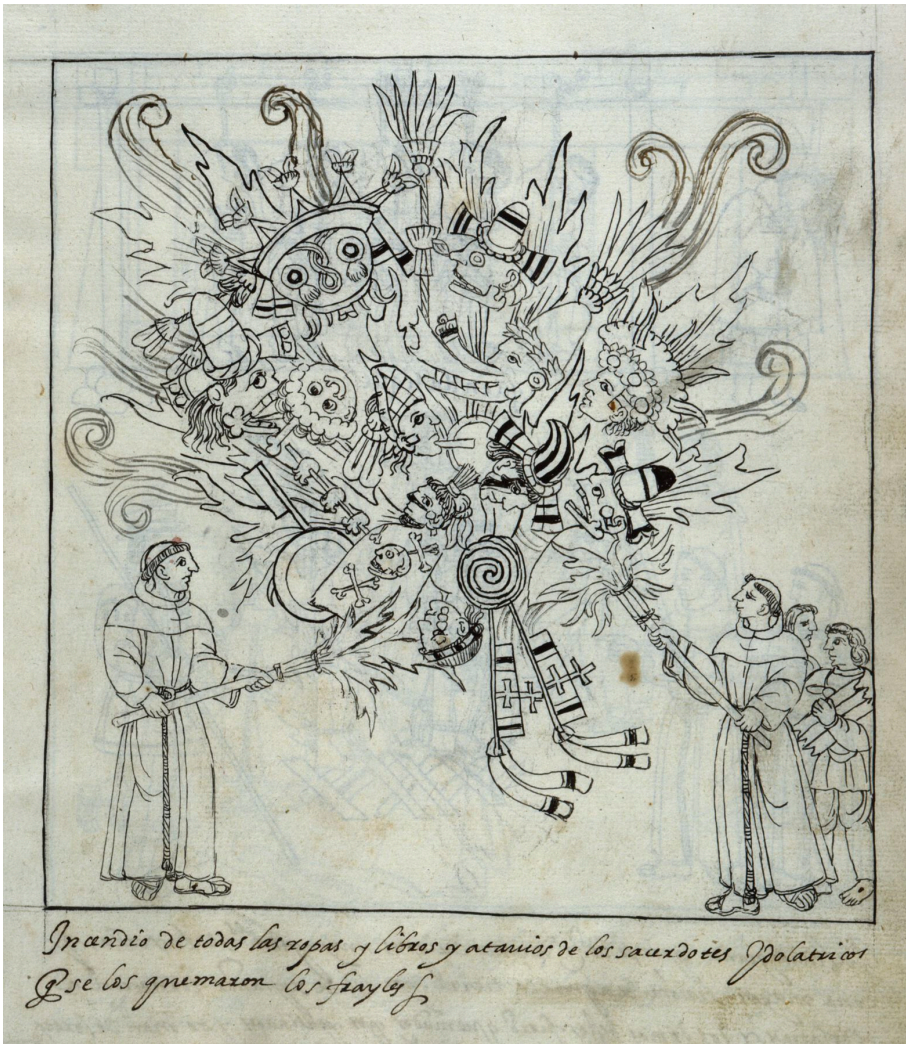 Incendio de todas las ropas y libros y atauios de los sacerdotes Ydolatricos
q se los quemaron los frayles